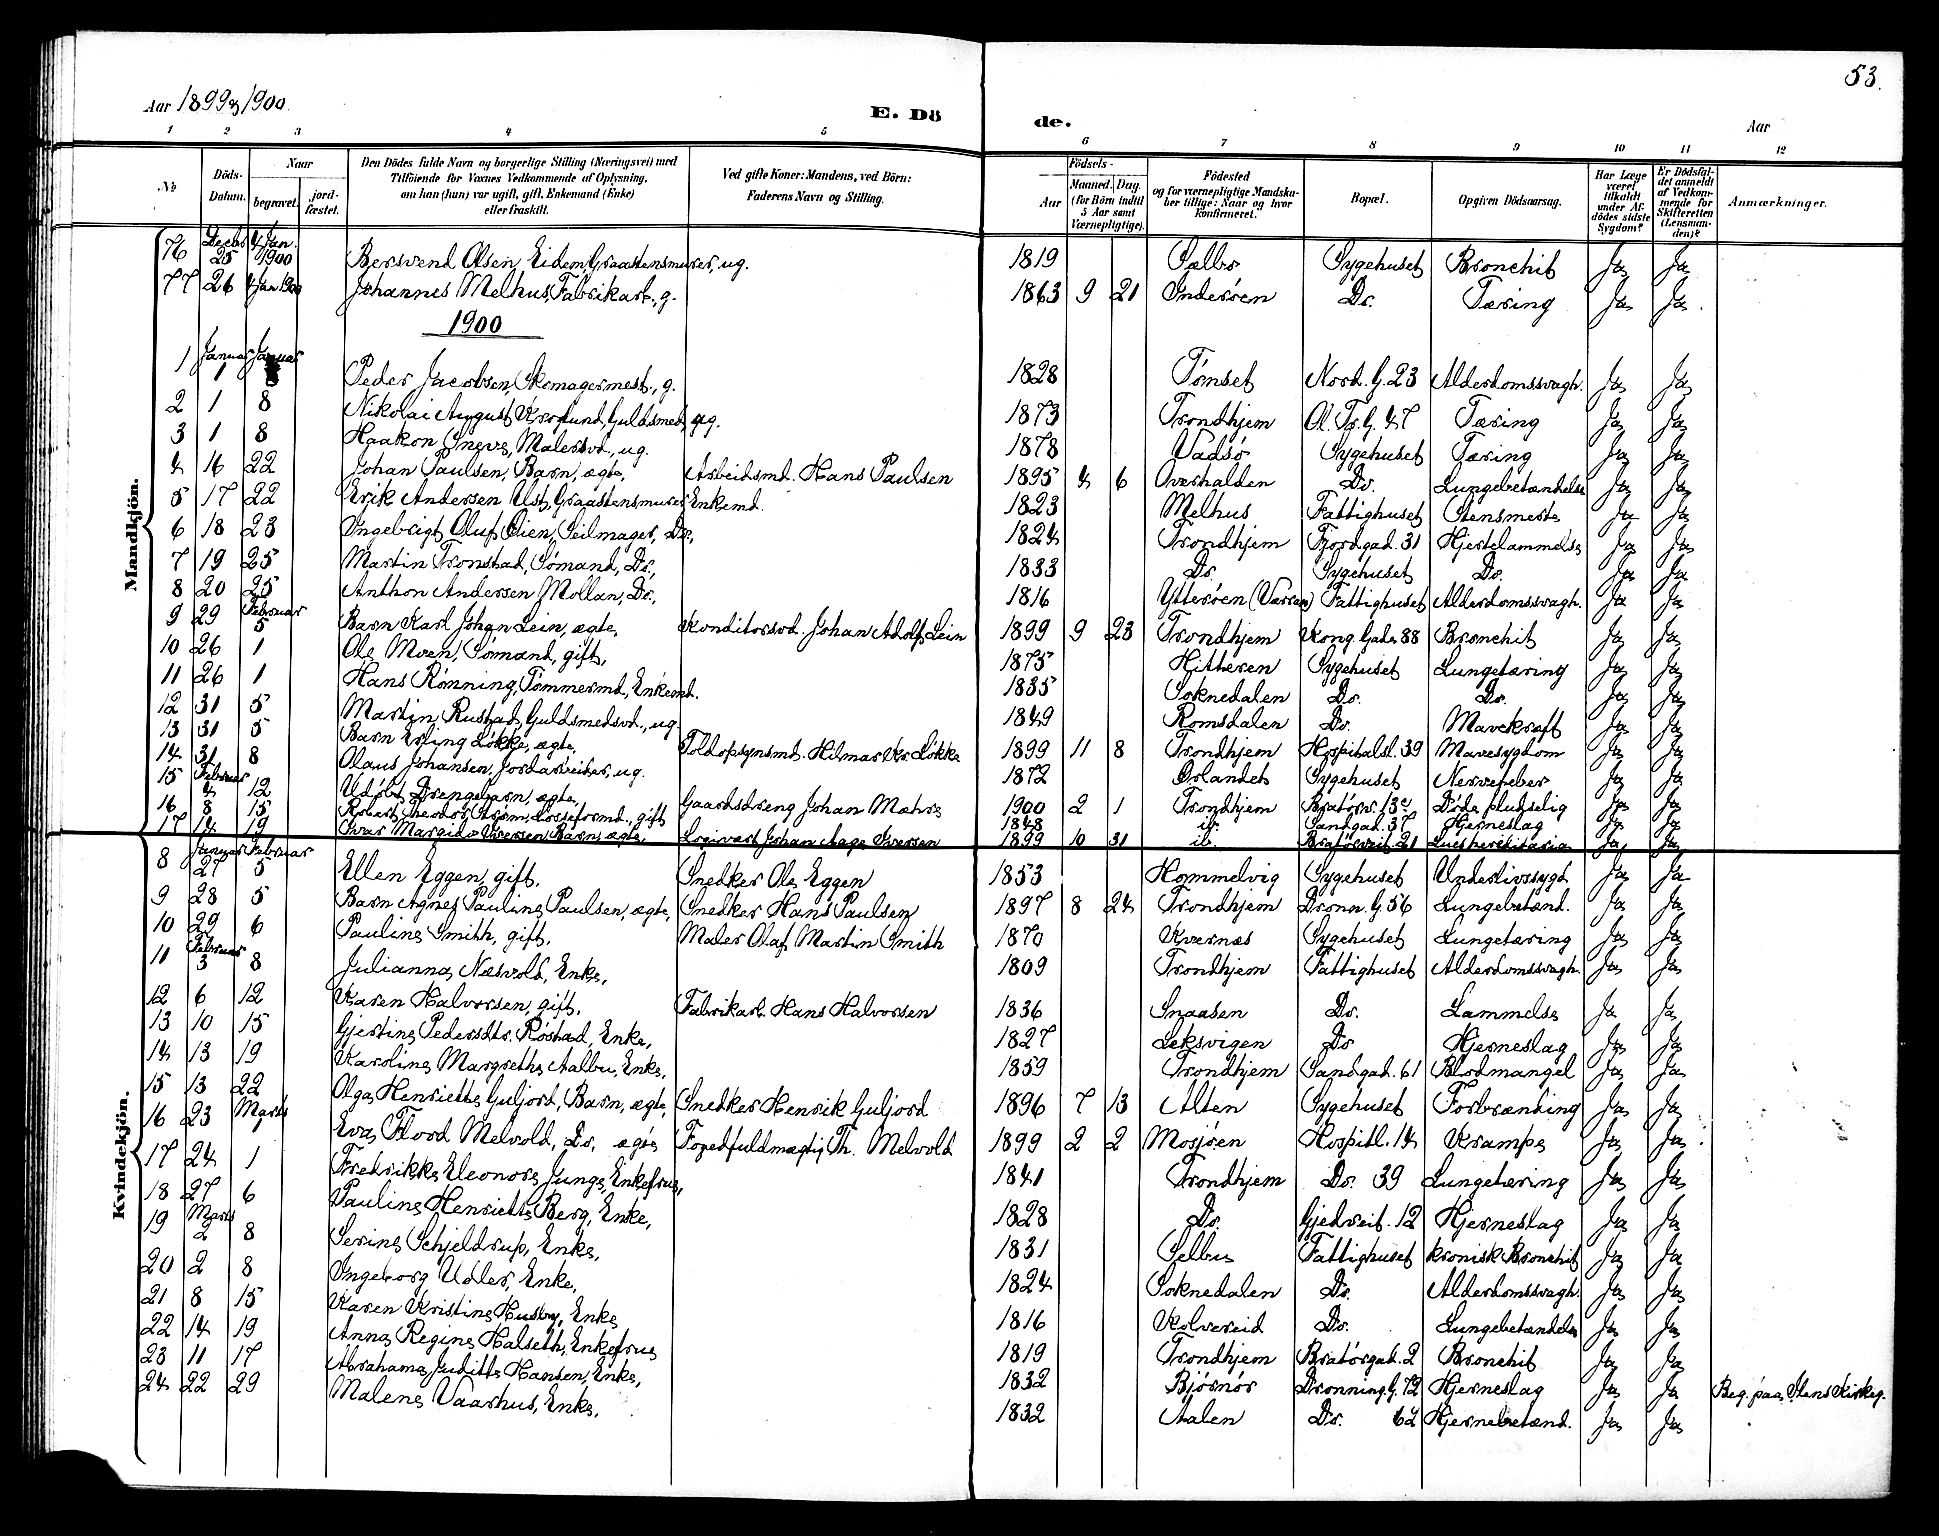 53.
Aar 1899 & 1900.
E. Dö de.
Aar
1 2 3 4 5 6 7 8 9 10 11 12
№ Döds-Datum. Naar begravet. jord-fæstet. Den Dödes fulde Navn og borgerlige Stilling (Næringsvei) med Tilföiende for Voxnes Vedkommende af Oplysning, om han (hun) var ugift, gift, Enkemand (Enke) eller fraskilt. Ved gifte Koner: Mandens, ved Börn: Faderens Navn og Stilling. Födsels- Aar Maaned. Dag. (for Börn indtil 5 Aar samt Værnepligtige). Födested og for værnepligtige Mandskaber tillige: Naar og hvor konfirmeret. Bopæl. Opgiven Dödsaarsag. Har Læge været tilkaldt under Afdödes sidste Sygdom? Er Dödsfaldet anmeldt af Vedkommende for Skifteretten (Lensmanden)? Anmærkninger.
Mandkjön.
76 Decbr 25 4 Jan. 1900 Bersvend Olsen Eidem, Graastensmurer, ug. 1819 Sælbo Sygehuset Bronchit Ja Ja
77 26 4 Jan 1900 Johannes Melhus, Fabrikarb., g. 1863 9 21 Inderøen Do. Tæring Ja Ja
1900
1 Januar 1 Januar Peder Jacobsen, Skomagermest., g. 1828 Tønset Nord. G. 23 Alderdomssvagh. Ja Ja
2 1 8 Nikolai August Kroglund, Guldsmed, ug. 1873 Trondhjem Ol. Tr. G. 47 Tæring Ja Ja
3 1 8 Haakon Sneve, Malersvd., ug. 1878 Vadsø Sygehuset Tæring Ja Ja
4 16 22 Johan Paulsen, Barn, ægte, Arbeidsmd. Hans Paulsen 1895 4 6 Overhalden Do. Lungebetændelse Ja Ja
5 17 22 Erik Andersen Ulst, Graastensmurer, Enkemd. 1823 Melhus Fattighuset Stensmerte Ja Ja
6 18 23 Ingebrigt Oluf Øien, Seilmager, Do., 1824 Trondhjem Fjordgad. 31 Hjertelammelse Ja Ja
7 19 25 Martin Tronstad, Sømand, Do., 1833 Do. Sygehuset Do. Ja Ja
8 20 25 Anthon Andersen Mollan, Do., 1816 Ytterøen (Værran) Fattighuset Alderdomssvagh. Ja Ja
9 29 Februar 5 Barn Karl Johan Lein, ægte, Konditorsvd. Johan Adolf Lein 1899 9 23 Trondhjem Kong. Gade 88 Bronchit Ja Ja
10 26 1 Ole Moen, Sømand, gift, 1875 Hitteren Sygehuset Lungetæring Ja Ja
11 26 1 Hans Rønning, Tømmermd., Enkemd. 1835 Soknedalen Do. Do. Ja Ja
12 31 5 Martin Rustad, Guldsmedsvd., ug. 1849 Romsdalen Do. Mavekræft Ja Ja
13 31 5 Barn Erling Løkke, ægte, Toldopsynsmd. Hilmar Kr. Løkke 1899 11 8 Trondhjem Hospitalsl. 39 Mavesygdom Ja Ja
14 31 8 Olaus Johansen, Jordarbeider, ug. 1872 Ørlandet Sygehuset Nervefeber Ja Ja
15 Februar 4 12 Udøbt Drengebarn, ægte, Gaardsdreng Johan Mæhre 1900 2 1 Trondhjem Bratørv. 13 c Døde pludselig Ja Ja
16 8 15 Robert Theodor Strøm, Losseformd., gift 1848 ib. Sandgad. 37 Hjerneslag Ja Ja
17 14 19 Ivar Margido Iversen, Barn, ægte, Logivært Johan Aage Iversen 1899 10 31 ib. Bratørveit 21 Lues hereditaria Ja Ja
Kvindekjön.
8 Januar 27 Februar 5 Ellen Eggen, gift. Snedker Ole Eggen 1853 Hommelvig Sygehuset Underlivssygd. Ja Ja
9 28 5 Barn Agnes Pauline Paulsen, ægte, Snedker Hans Paulsen 1897 8 24 Trondhjem Dronn. G. 56 Lungebetænd. Ja Ja
10 29 6 Pauline Smith, gift, Maler Olaf Martin Smith 1870 Kvernæs Sygehuset Lungetæring Ja Ja
11 Februar 3 8 Julianna Næsvold, Enke, 1809 Trondhjem Fattighuset Alderdomssvagh. Ja Ja
12 6 12 Karen Halvorsen, gift, Fabrikarb. Hans Halvorsen 1836 Snaasen Do. Lammelse Ja Ja
13 10 15 Gjertine Pedersdtr. Røstad, Enke, 1827 Leksvigen Do Hjerneslag Ja Ja
14 13 19 Karoline Margrethe Aalbu, Enke, 1859 Trondhjem Sandgad. 61 Blodmangel Ja Ja
15 13 22 Olga Henriette Guljord, Barn, ægte, Snedker Henrik Guljord 1896 7 13 Alten Sygehuset Forbrænding Ja Ja
16 23 Marts 1 Eva Flord Melvold, Do, ægte Fogedfuldmægtig Th. Melvold 1899 2 2 Mosjøen Hospitl. 14 Krampe Ja Ja
17 24 1 Fredrikke Eleonore Junge, Enkefrue, 1841 Trondhjem Do. 39 Lungetæring Ja Ja
18 27 6 Pauline Henriette Berg, Enke, 1828 Do. Gjedveit. 12 Hjerneslag Ja Ja
19 Marts 2 8 Serine Schjeldrup, Enke, 1831 Selbu Fattighuset kronisk Bronchit Ja Ja
20 2 8 Ingeborg Udler, Enke, 1824 Soknedalen Do. Alderdomssvagh. Ja Ja
21 8 15 Karen Kristine Husby, Enke 1816 Kolvereid Do. Lungebetændelse Ja Ja
22 14 19 Anna Regine Halseth, Enkefrue 1819 Trondhjem Bratørgad. 2 Bronchit Ja Ja
23 11 17 Abrahama Juditte Hansen, Enke, 1832 Bjørnør Dronning. G. 72 Hjerneslag Ja Ja Beg. paa Stens Kirkeg.
24 22 29 Malene Vaarhus, Enke. 1832 Aalen Do. 62 Hjernebetænd. Ja Ja